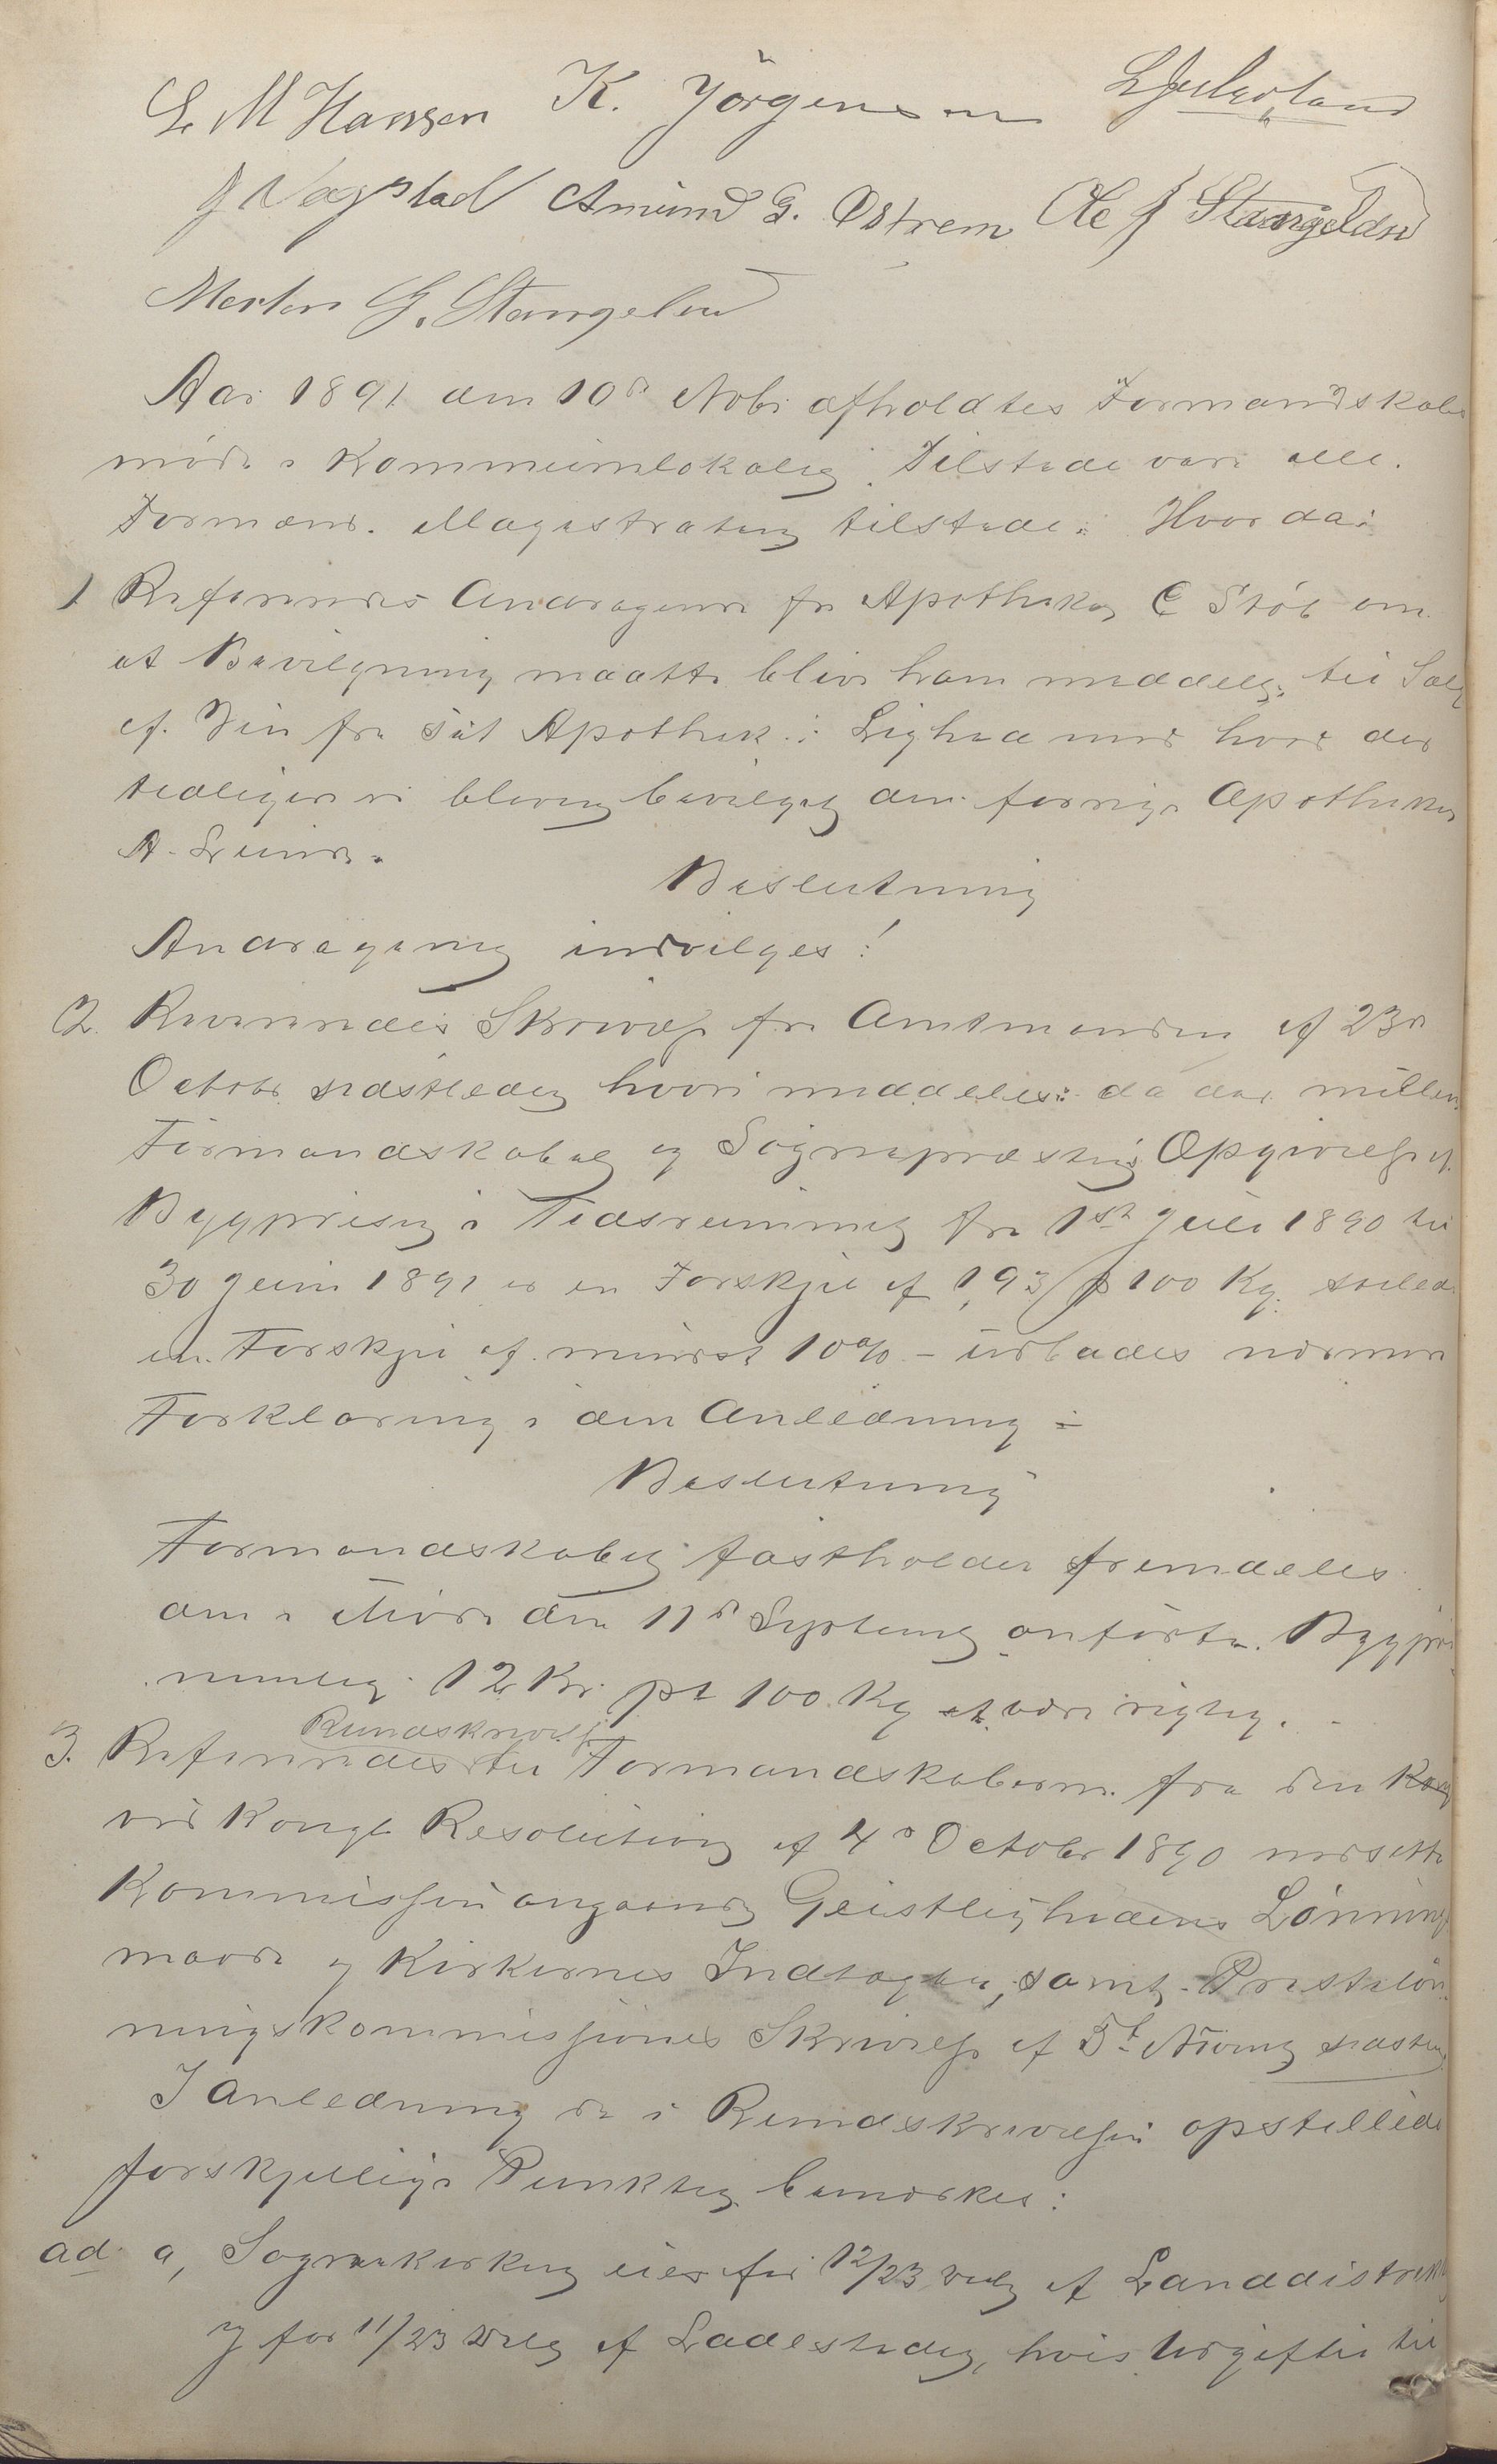 L. M Hansen K. Jörgensen
J Vagstad Amund G. Østrem Ole J Stangeland
Morten G. Stangeland
Aar 1891 den 10de Nobr afholdtes Formandskabs
møde i Kommunelokalet. Tilstede vare alle
Formænd. Magistraten tilstede. Hvor da:
1 Refereredes Andragende fra Apotheker C Støb om
at Bevilgning maatte blive ham meddelt til Salg
af Vin fra sit Apothek i Lighed med hvad der
tidligere er bleven bevilget den forrige Apotheker
A. Lunde.
Beslutning
Andragende indvilges!
2. Refereredes Skrivelse fra Amtmanden af 23de
Octobr sidstleden hvori meddeles: da der mellem
Formandskabet og Sognepræstens Opgivelse af
Bygprisen i Tidsrummet fra 1ste Juli 1890 til
30 Juni 1891 er en Forskjel af 1,93 p 100 Kg. saaled
en Forskjel af mindst 10% - udbades nærmere
Forklaring i den Anledning -
Beslutning
Formandskabet fastholder fremdeles
den i Møde den 11te Septembr anførte Bygpris
nemlig 12 Kr. pr 100 Kg at være rigtig.
Rundskrivelse
3. Refereredes til Formandskaberne fra den
ved Kongl Resolution af 4de October 1890 nedsatte
Kommission angaaende Geistlighedens Lønnings
maade og Kirkernes Indtægter, samt Præsteløn
ningskommissionens Skrivelse af 5t Novbr sidstl
I Anledning de i Rundskrivelsen opstillede
forskjellige Punkter bemærkes:
ad a, Sognekirken eies for 12/23 Del af Landdistriktet
og for 11/23 Del af Ladestedet, hvis Udgifter til